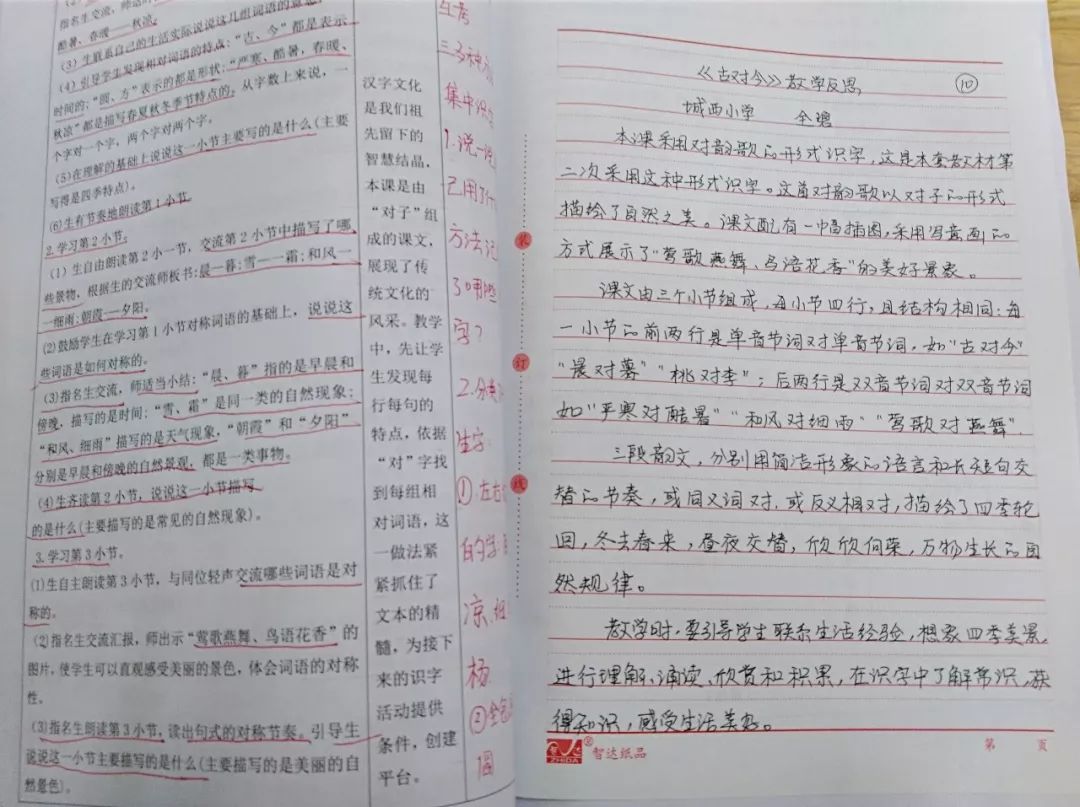 指名生交流，师适
酷暑、春暖——秋凉。
(3) 生联系自己的生活实际说说这几组词语的意思。
(4) 引导学生发现相对词语的特点：“古、今”都是表示
时间的；“圆、方”表示的都是形状；“严寒、酷暑，春暖、
秋凉”都是描写春夏秋冬季节特点的。从字数上来说，一
个字对一个字，两个字对两个字。
(5)在理解的基础上说说这一小节主要写的是什么(主要
写得是四季特点)。
(6)生有节奏地朗读第1小节。
2.学习第2小节。
(1) 生自由朗读第2小一节，交流第2小节中描写了哪
些景物，根据生的交流师板书：晨—暮；雪—霜；和风—
—细雨；朝霞—夕阳。
(2)鼓励学生在学习第1小节对称词语的基础上，说说这
些词语是如何对称的。
(3)指名生交流，师适当小结：“晨、暮”指的是早晨和
傍晚，描写的是时间；“雪、霜”是同一类的自然现象；
“和风、细雨”描写的是天气现象，“朝霞”和“夕阳”
分别是早晨和傍晚的自然景观，都是一类事物。
(4)生齐读第2小节，说说这一小节描写
的是什么(主要描写的是常见的自然现象)。
3.学习第3小节。
(1)生自主朗读第3小节，与同位轻声交流哪些词语是对
称的。
(2)指名生交流汇报，师出示“莺歌燕舞、鸟语花香”的
图片，使学生可以直观感受美丽的景色，体会词语的对称
性。
(3)指名生朗读第3小节，读出句式的对称节奏。引导生
说说这一小节主要描写的是什么(主要描写的是美丽的自
然景色)。
汉字文化
是我们祖
先留下的
智慧结晶，
本课是由
“对子”组
成的课文，
展现了传
统文化的
风采。教学
中，先让学
生发现每
行每句的
特点，依据
“对”字找
到每组相
对词语，这
一做法紧
紧抓住了
文本的精
髓，为接下
来的识字
活动提供
条件，创建
平台。
三.多种方
集中识
1.说一说
己用了什
方法记
了哪些
字？
2.分类
生字：
①左右
的字：
凉.
杨
②全包
圆
装
订
线
《古对今》教学反思
⑩
城西小学
本课采用对韵歌的形式识字，这是本套教材第
二次采用这种形式识字。这首对韵歌以对子的形式
描绘了自然之美。课文配有一幅插图，采用写意画的
方式展示了“莺歌燕舞、鸟语花香”的美好景象。
课文由三个小节组成，每小节四行，且结构相同：每
一小节的前两行是单音节词对单音节词，如“古对今”
“晨对暮”“桃对李”；后两行是双音节词对双音节词
如“严寒对酷暑”“和风对细雨”“莺歌对燕舞”.
三段韵文，分别用简洁形象的语言和长短句交
替的节奏，或同义词对，或反义相对，描绘了四季轮
回，冬去春来，昼夜交替，欣欣向荣，万物生长的自
然规律。
教学时，要引导学生联系生活经验，想象四季美景，
进行理解、诵读、欣赏和积累，在识字中了解常识，获
得知识，感受生活美好。
ZHIDA
智达纸品
第 页